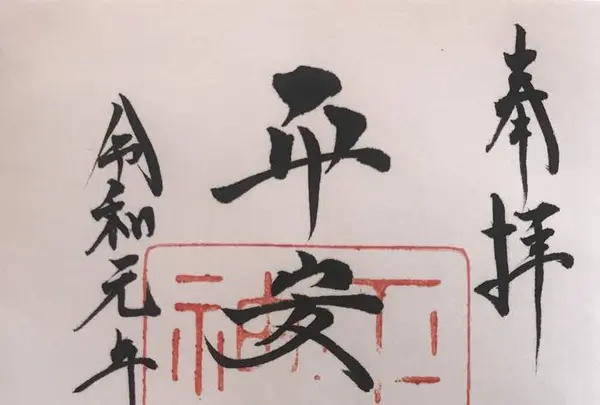 奉拝
平安
令和元年